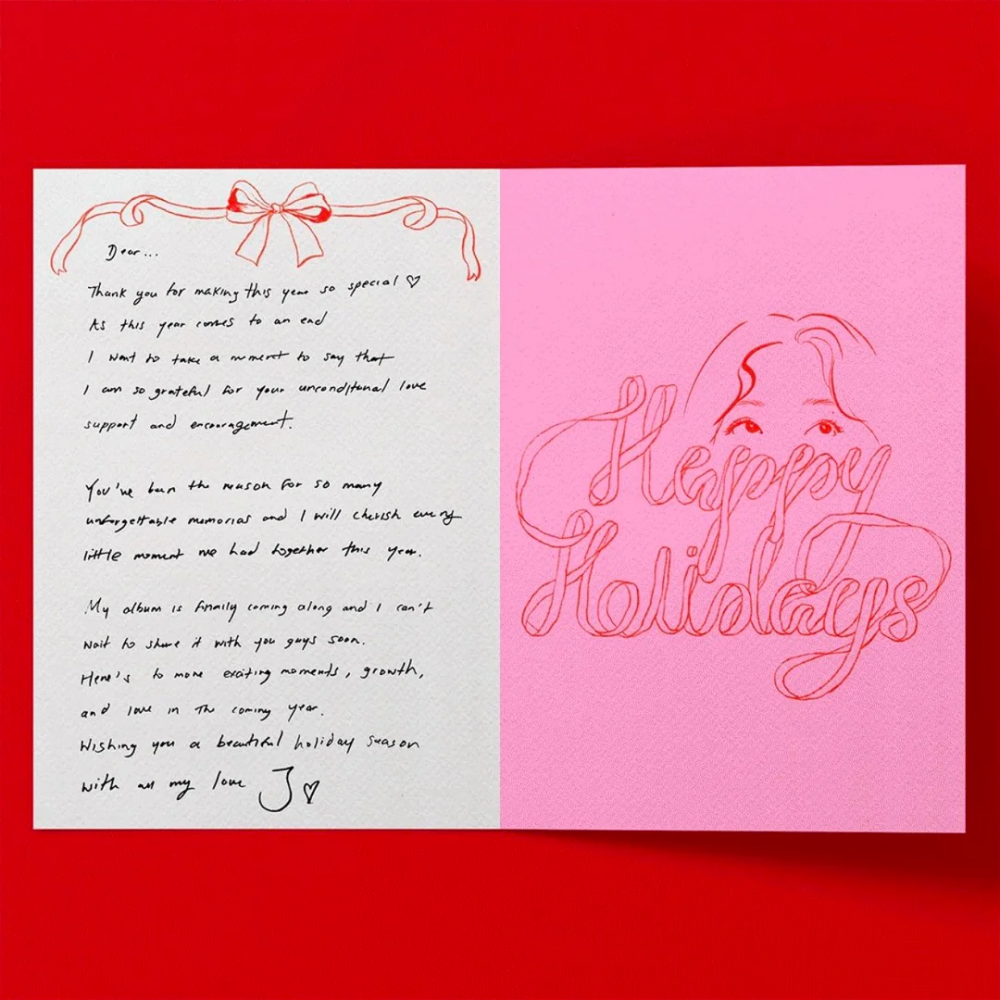 Dear...
Thank you for making this year so special ♡
As this year comes to an end
I want to take a moment to say that
I am so grateful for your unconditional love
support and encouragement.
You've been the reason for so many
unforgettable memories and I will cherish every
little moment we had together this year.
My album is finally coming along and I can't
wait to share it with you guys soon.
Here's to more exciting moments, growth,
and love in the coming year.
Wishing you a beautiful holiday season
with all my love J♡
Happy
Holidays